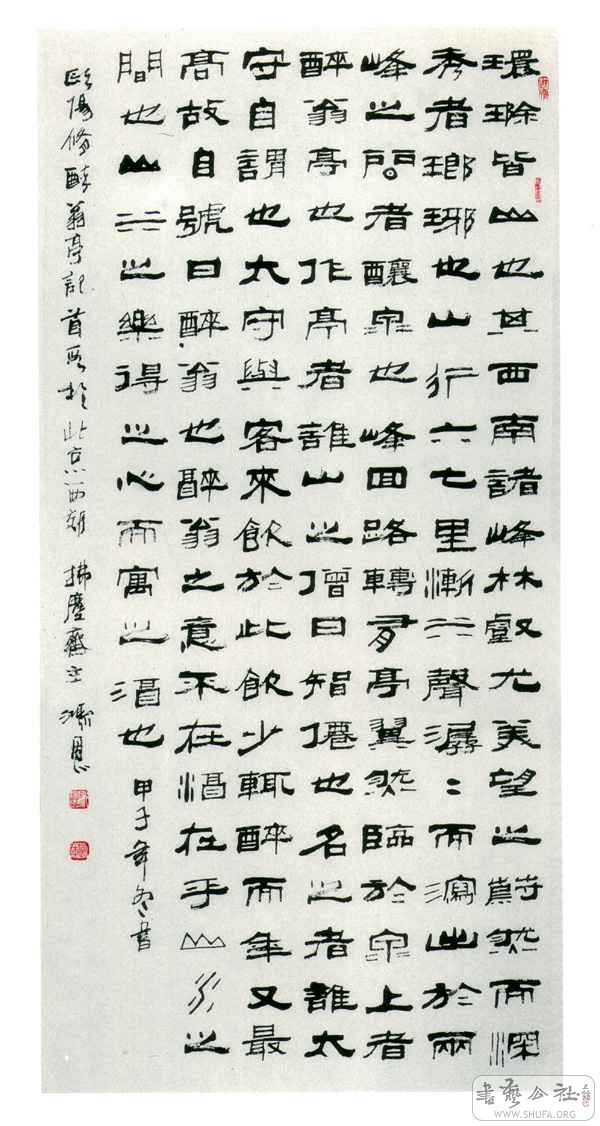 環滁皆山也其西南諸峰林壑尤美望之蔚然而深
秀者瑯琊也山行六七里漸水聲潺〻而瀉出於兩
峰之間者釀泉也峰回路轉有亭翼然臨於泉上者
醉翁亭也作亭者誰山之僧曰智僊也名之者誰太
守自謂也太守與客來飲於此飲少輒醉而年又最
高故自號曰醉翁也醉翁之意不在酒在乎山水之
間也山水之樂得之心而寓之酒也 甲子年冬書
歐陽修醉翁亭記首段於北京西郊 拂塵齋主
書藝公社
WWW.SHUFA.ORG